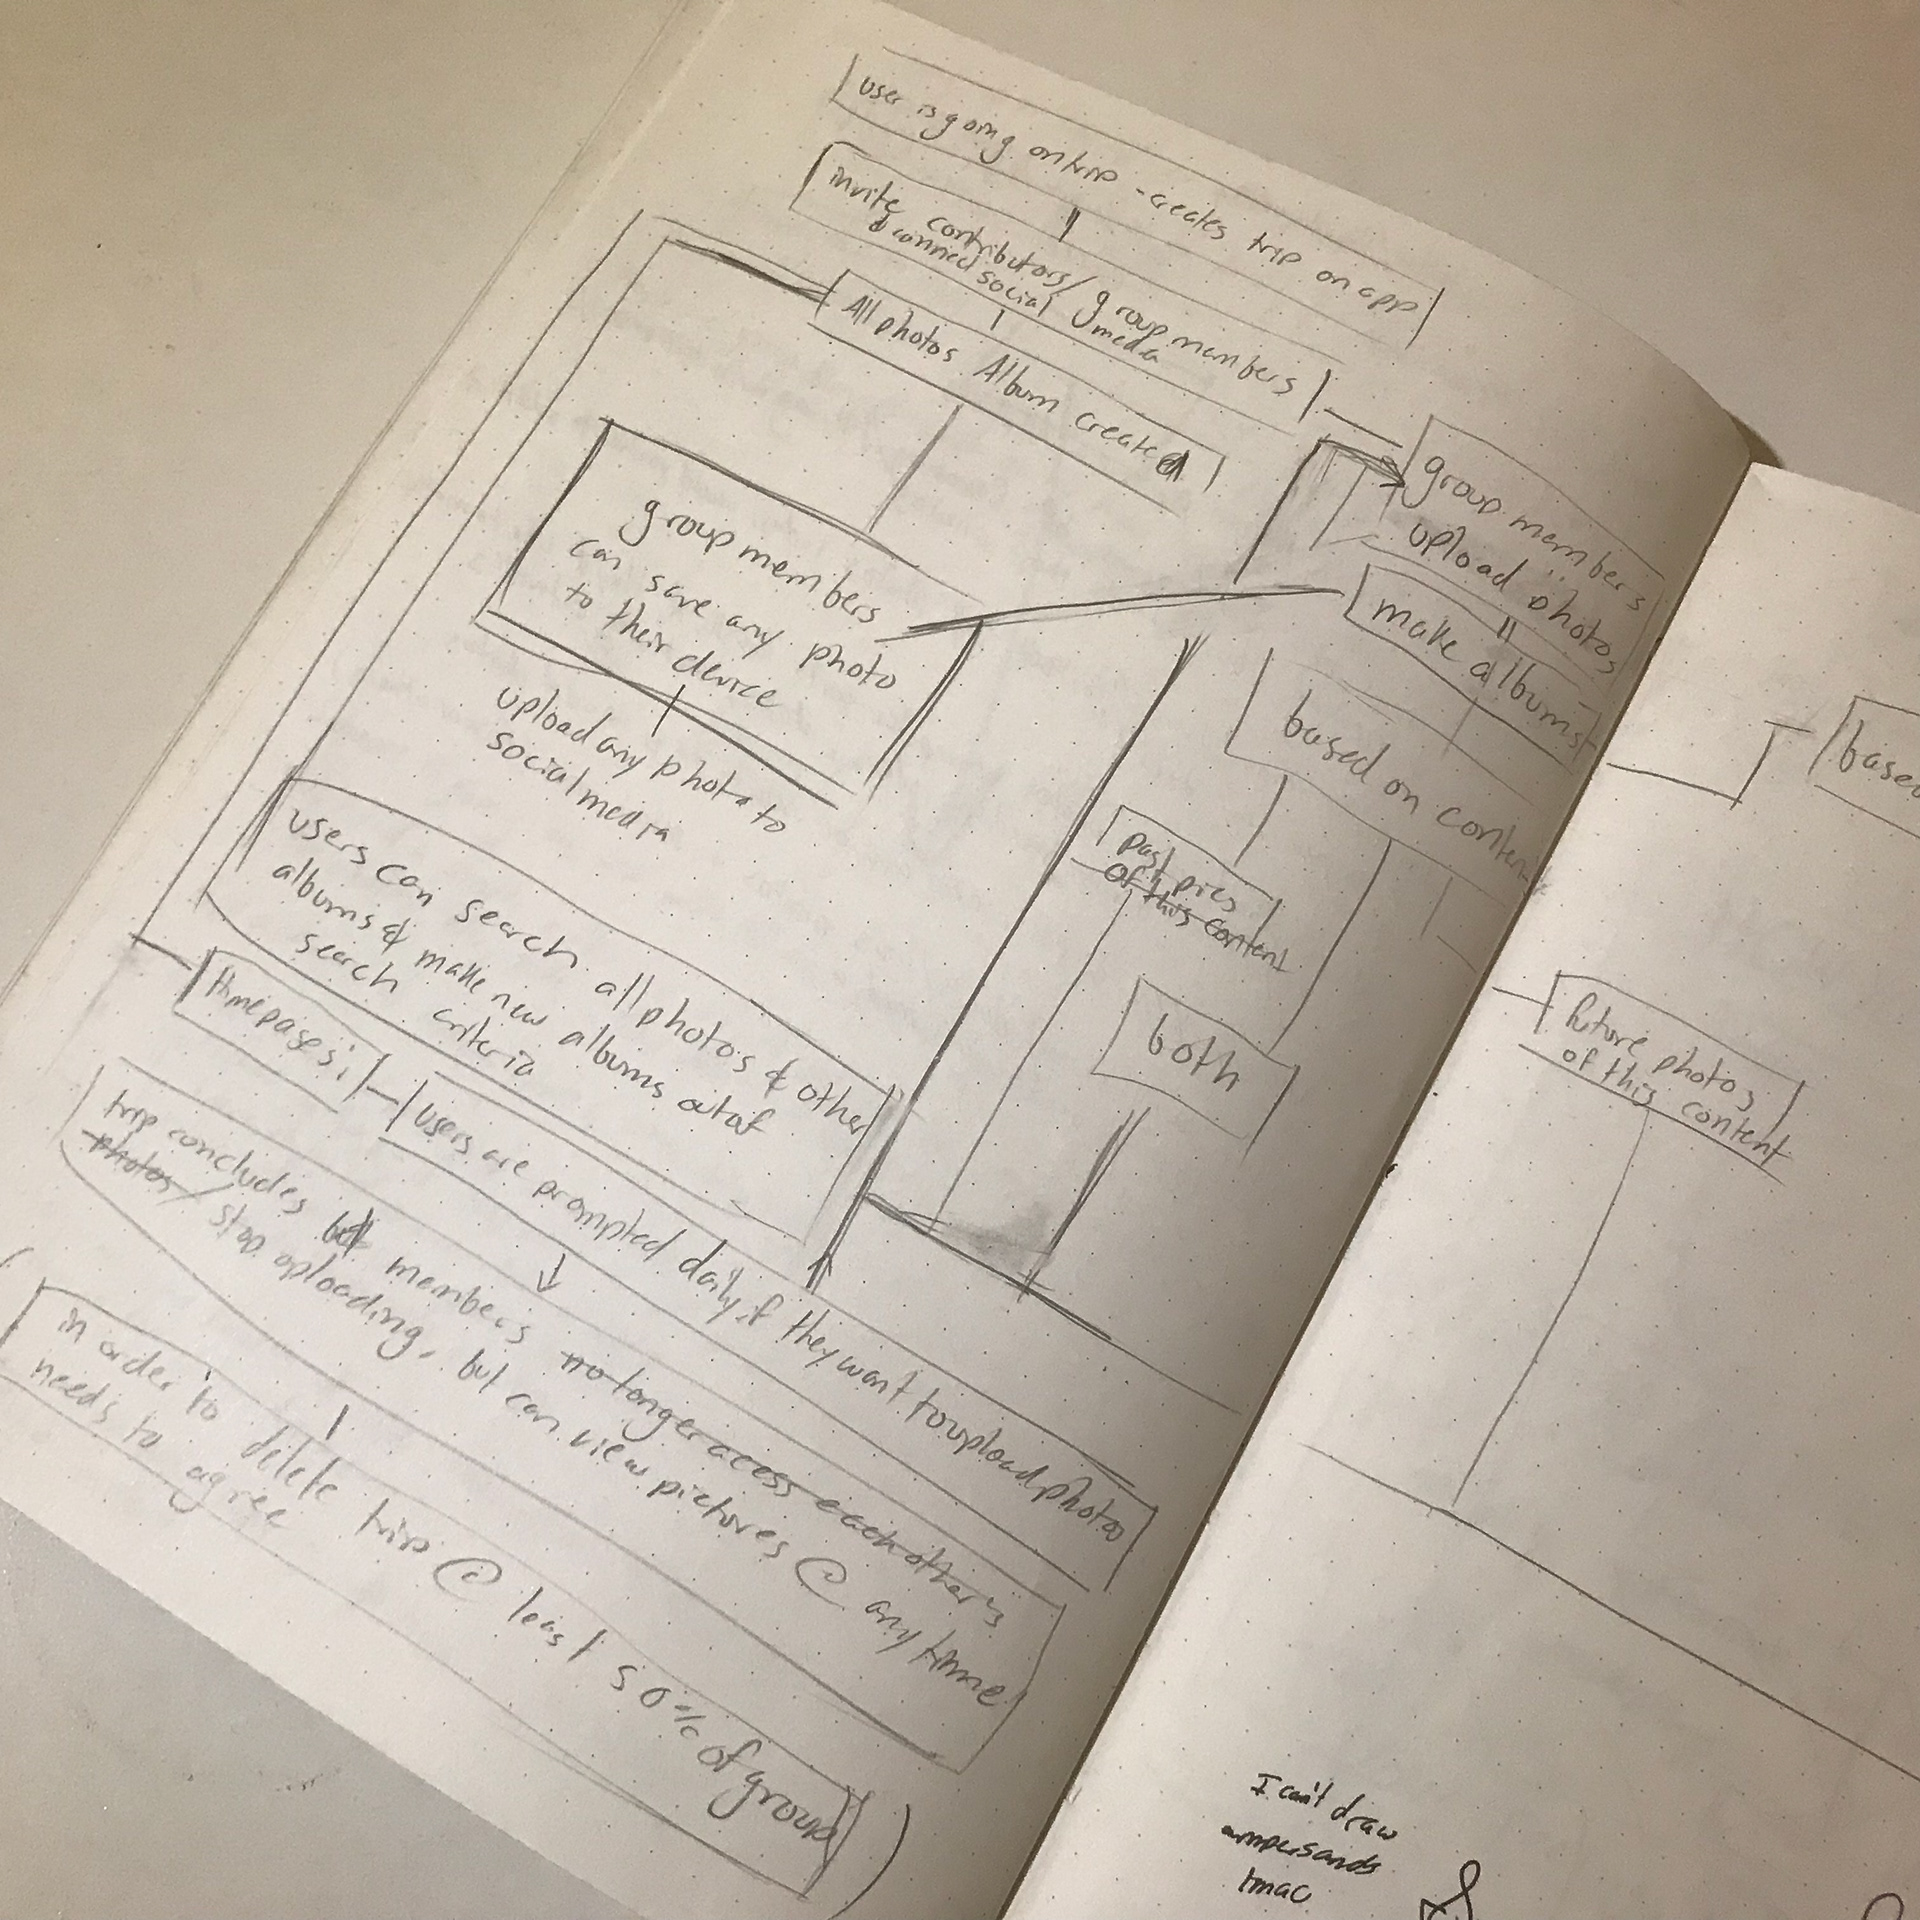 user is going on trip - creates trip on app
invite contributors/group members
& connect social media
All photos Album created
group members
upload photos
group members
can save any photo
to their device
make albums
upload any photo to
social media
based on content
based
past pics
of this content
both
future photos
of this content
users can search all photos & other
albums & make new albums out of
search criteria
time passes;
users are prompted daily if they want to upload photos
trip concludes but members no longer access each other's
photos/ stop uploading, but can view pictures @ any time
in order to delete trip @ least 50% of group
needs to agree
I can't draw
ampersands
lmao